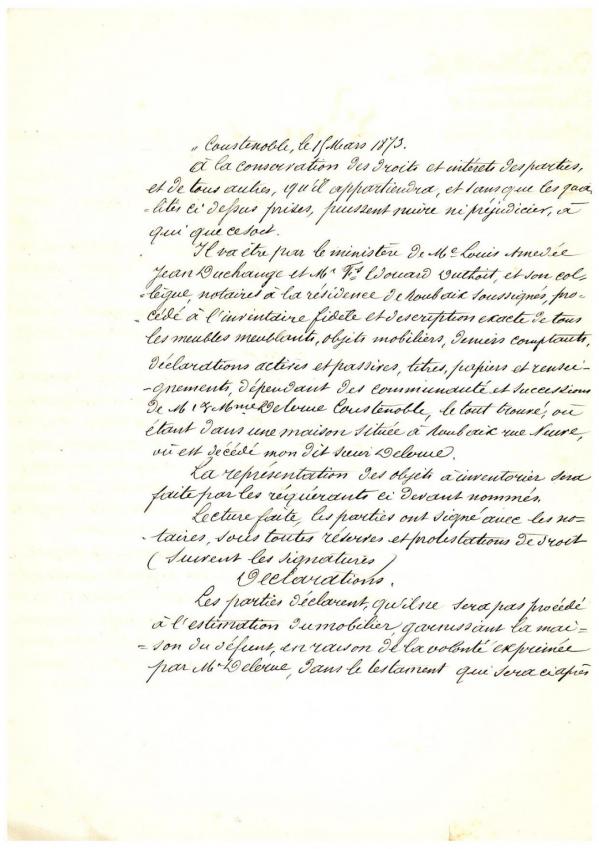 „ Coustenoble, le 15 Mars 1873.
à la conservation des droits et intérêts des parties,
et de tous autres, qu'il appartiendra, et sans que les qua
-lités ci dessus prises, puissent nuire ni préjudicier, à
qui que ce soit.
Il va être par le ministère de Me Louis Amedée
Jean Duchange et Me Fs Edouard Duthoit, et son col-
-lègue, notaires à la résidence de Roubaix soussignés, pro-
-cédé à l'inventaire fidèle et description exacte de tous
les meubles meublants, objets mobiliers, deniers comptants,
déclarations actives et passives, titres, papiers et rensei-
-gnements, dépendant des communauté et successions
de Mr & Mme Delerue Coustenoble, le tout trouvé, ou
étant dans une maison située à Roubaix rue Neuve,
où est décédé mon dit sieur Delerue.
La représentation des objets à inventorier sera
faite par les réquérants ci devant nommés.
Lecture faite, les parties ont signé avec les no-
-taires, sous toutes réserves et protestations de droit
(Suivent les signatures)
Déclarations.
Les parties déclarent, qu'il ne sera pas procédé
à l'estimation du mobilier garnissant la mai-
-son du défunt, en raison de la volonté exprimée
par Mr Delerue, dans le testament qui sera ci après